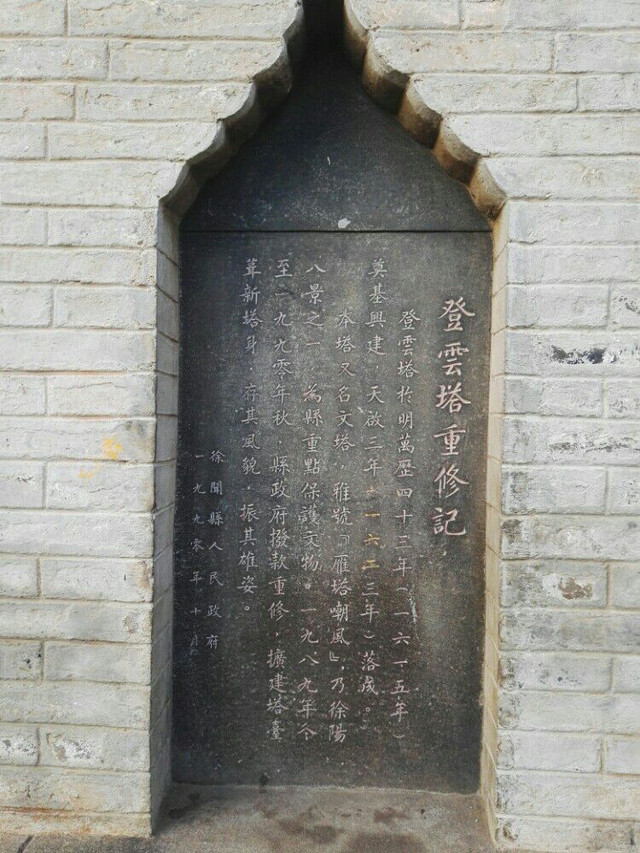 登雲塔重修記
登雲塔於明萬歷四十三年（一六一五年）
奠基興建，天啟三年（一六二三年）落成。
本塔又名文塔，雅號『雁塔嘲風』，乃徐陽
八景之一，為縣重點保護文物。一九八九年冬
至一九九零年秋，縣政府撥款重修，擴建塔臺
葺新塔身，存其風貌，振其雄姿。
徐聞縣人民政府
一九九零年十月